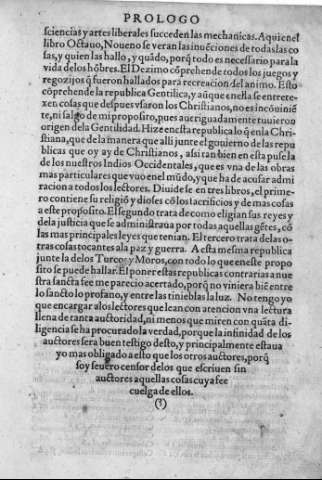 PROLOGO
sciencias y artes liberales succeden las mechanicas. Aqui enel
libro Octauo, Noueno se veran las inuēciones de todas las co
sas, y quien las hallo, y quādo, porq̄ todo es necessario para la
vida de los hōbres. El Dezimo cōprehende todos los juegos y
regozijos q̄ fueron hallados para recreacion del animo. Esto
cōprehende la republica Gentilica, y aūque en ella se entrete-
xen cosas que despues vsaron los Christianos, no es incōuiniē
te, ni salgo de mi proposito, pues aueriguadamente tuuieron
origen dela Gentilidad. Hize en esta republica lo q̄ en la Chri-
stiana, que de la manera que alli junte el gouierno de las repu
blicas que oy ay de Christianos, assi tan bien en esta puse la
de los nuestros Indios Occidentales, que es vna de las obras
mas particulares que vuo en el mūdo, y que ha de acusar admi
racion a todos los lectores. Diuide se en tres libros, el prime-
ro contiene su religiō y dioses cō los sacrificios y de mas cosas
a este proposito. El segundo trata de como eligian sus reyes y
dela justicia que se administraua por todas aquellas gētes, cō
las mas principales leyes que tenian. El tercero trata delas o-
tras cosas tocantes ala paz y guerra. A esta mesma republica
junte la delos Turcos y Moros, con todo lo que en este propo
sito se puede hallar. El poner estas republicas contrarias a nue
stra sancta fee me parecio acertado, porq̄ no viniera biē entre
lo sancto lo profano, y entre las tinieblas la luz. No tengo yo
que encargar alos lectores que lean con atencion vna lectura
llena de tanta auctoridad, ni menos que miren con quāta di-
ligencia se ha procurado la verdad, porque la infinidad de los
auctores sera buen testigo desto, y principalmente estaua
yo mas obligado a esto que los otros auctores, porq̄
soy seuero censor delos que escriuen sin
auctores aquellas cosas cuya fee
cuelga de ellos.